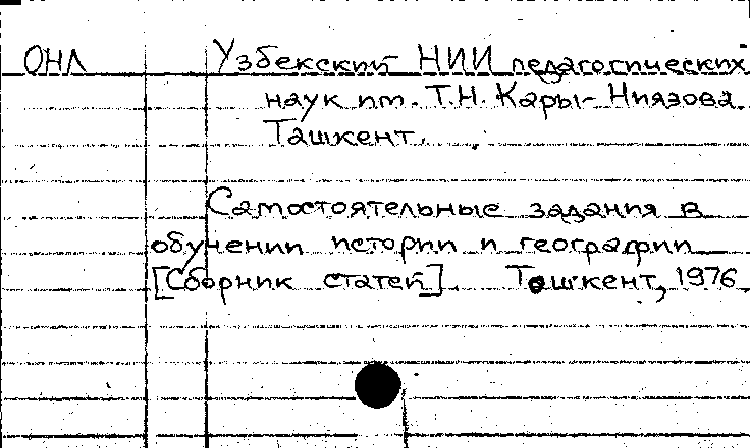 ОНЛ Узбекский НИИ педагогических
наук им. Т.Н. Кары-Ниязова.
Ташкент.
Самостоятельные задания в
обучении истории и географии
[Сборник статей]. Ташкент, 1976